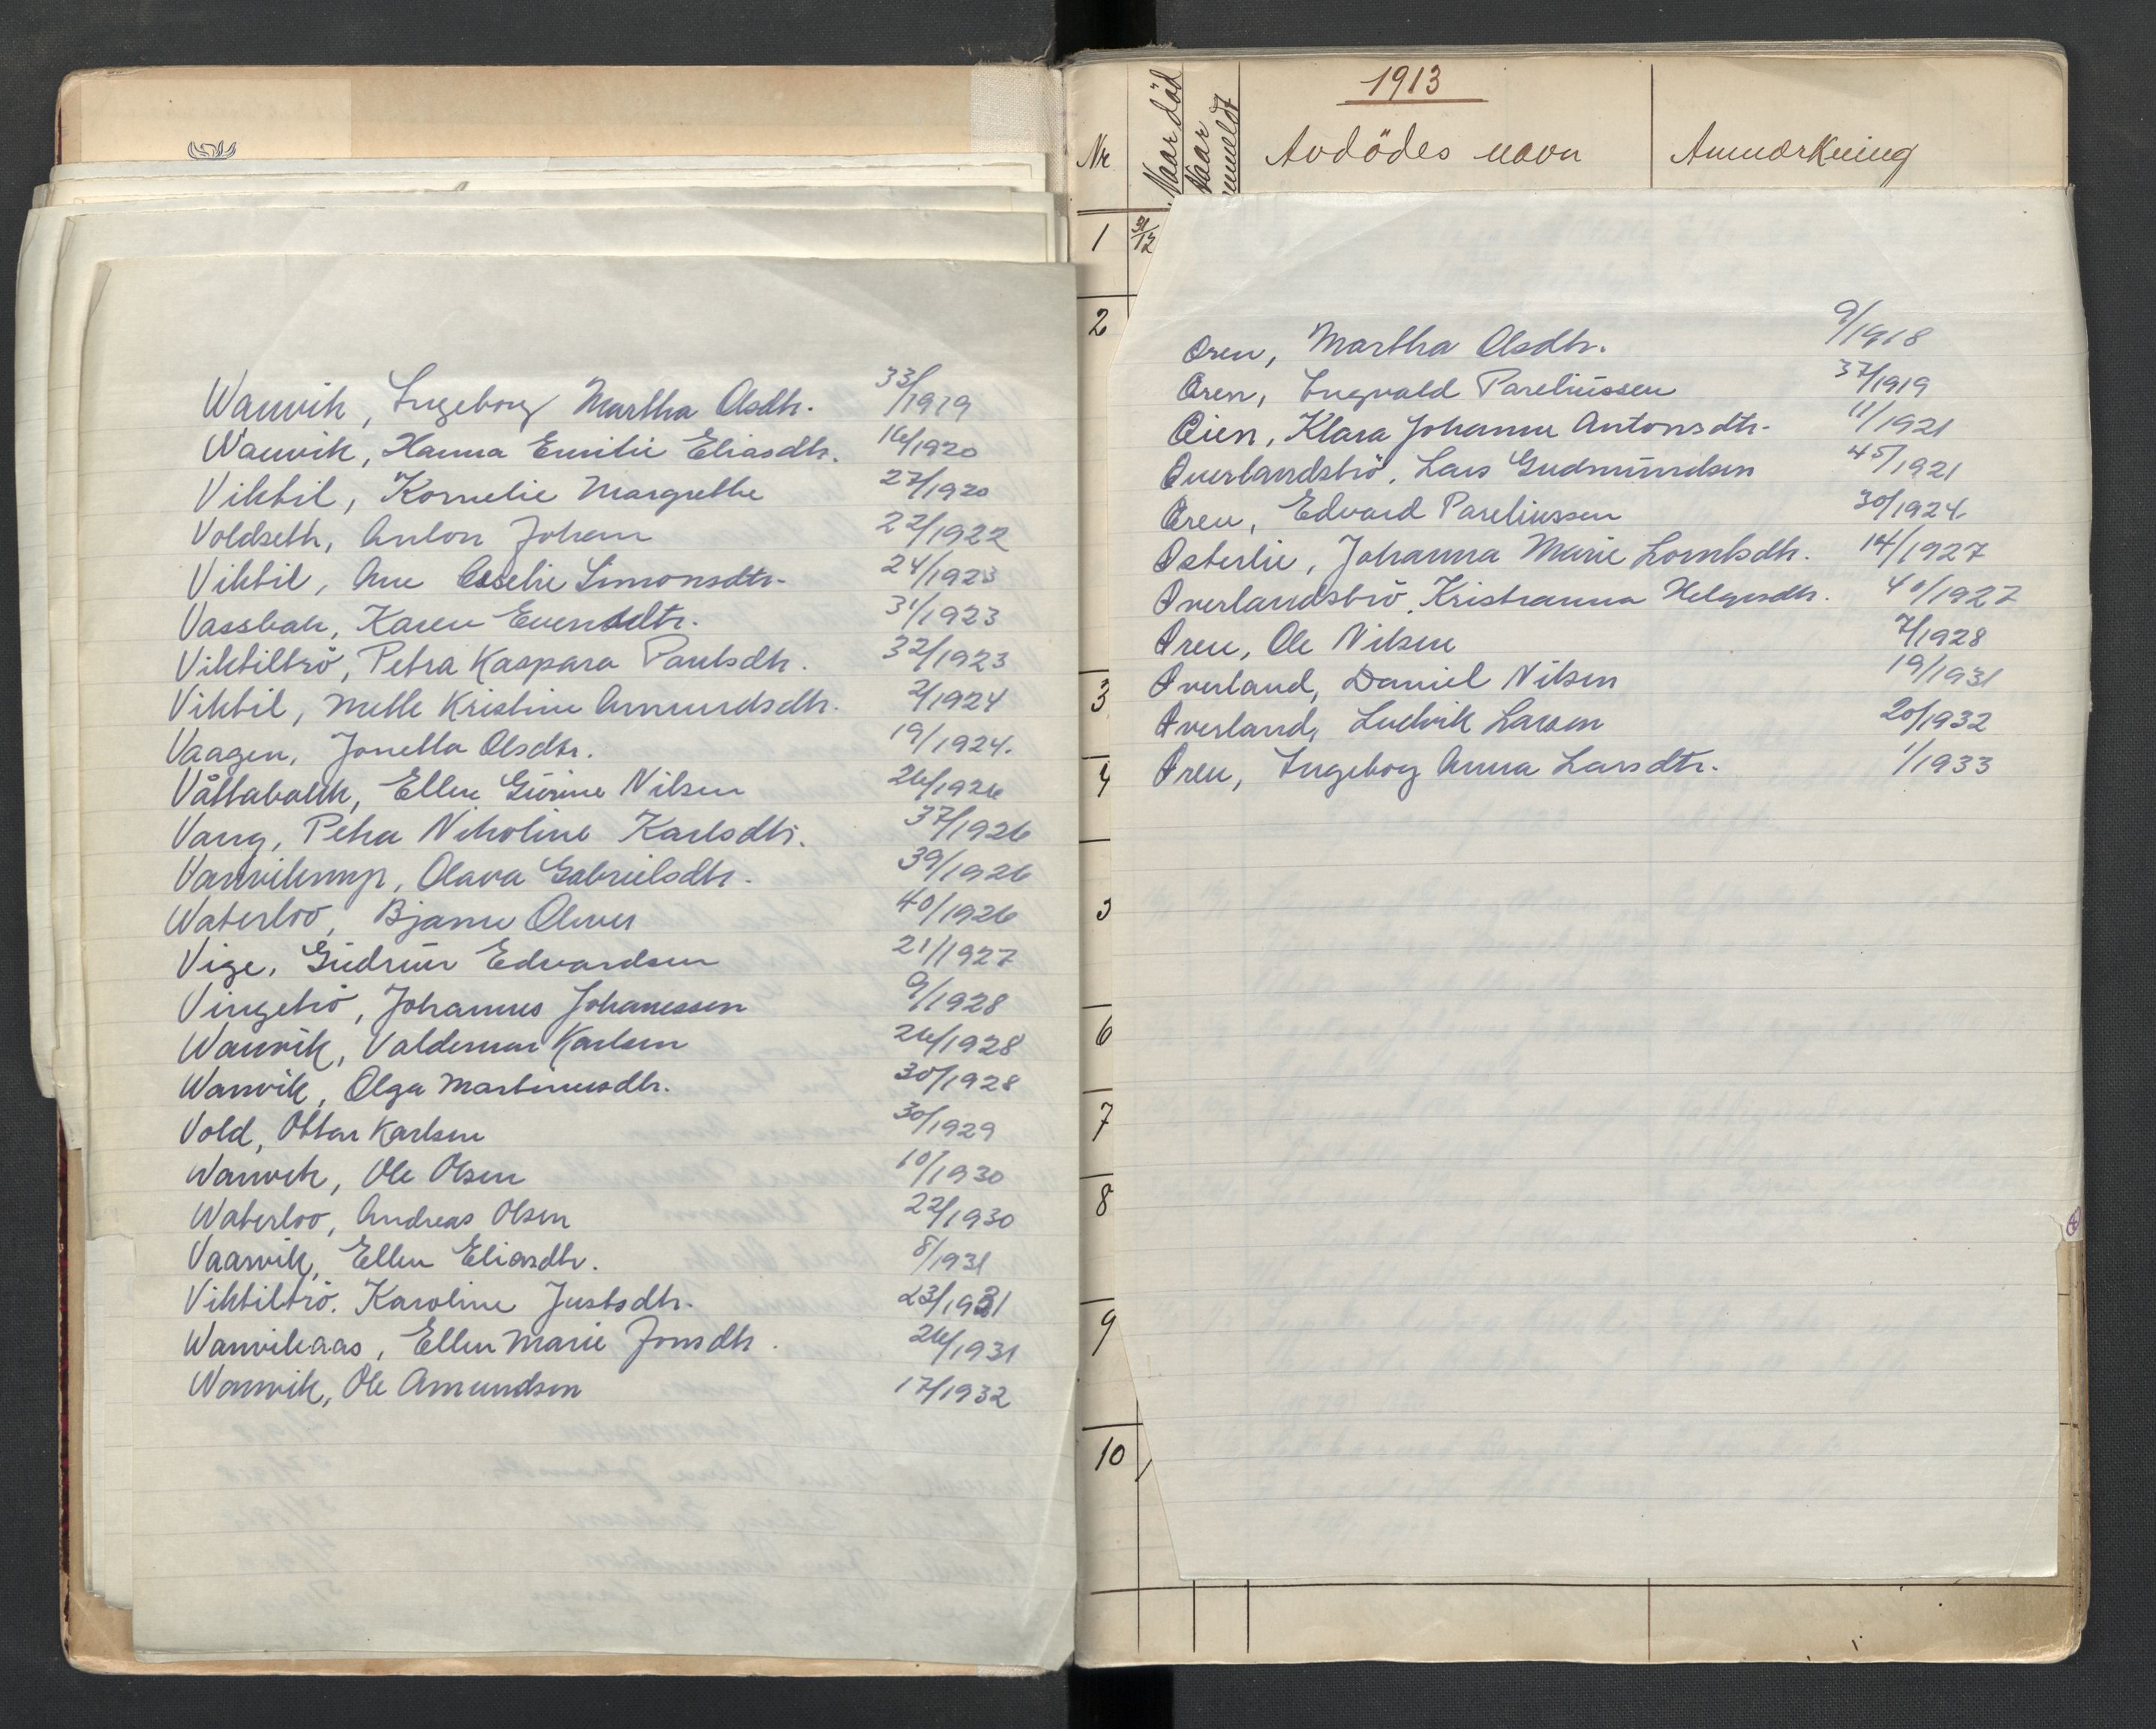 Wanvik, Ingeborg Martha Olsdtr. 33/1919
Wanvik, Hanna Emilie Eliasdtr. 16/1920
Viktil, Kornelie Margrethe 27/1920
Voldseth, Anton Johan 22/1922
Viktil, Ane Simonsdtr. 24/1923
Vassbak, Karen Evensdtr. 31/1923
Viktiltrö, Petra Kaspara Paulsdtr. 32/1923
Viktil, Mette Kristine Amundsdtr. 2/1924
Vaagen, Jonetta Olsdtr. 19/1924.
Våttabakk, Ellen Gurine Nilsen 26/1926
Vang, Petra Nikoline Karlsdtr. 37/1926
Wanvikmyr, Olava Gabrielsdtr. 39/1926
Waterloo, Bjarne Oliver 40/1926
Vige, Gudrun Edvardsen 21/1927
Vingetrö, Johannes Johanessen 9/1928
Wanvik, Valdemar Karlsen 26/1928
Wanvik, Olga Martinusdtr. 30/1928
Vold, Ottar Karlsen 30/1929
Wanvik, Ole Olsen 10/1930
Waterloo, Andreas Olsen 22/1930
Vaanvik, Ellen Eliasdtr. 8/1931
Viktiltrö. Karoline Justsdtr. 23/1931
Wanvikaas, Ellen Marie Jonsdtr. 26/1931
Wanvik, Ole Amundsen 17/1932
1913
Nr Naar död Naar anmeldt Avdödes navn Anmærkning
1 31/12
2
3
4
5
6
7
8
9
10
Ören, Martha Olsdtr. 9/1918
Ören, Ingvald Pareliussen 37/1919
Öien, Klara Johanne Antonsdtr. 11/1921
Överlandströ, Lars Gudmundsen 45/1921
Ören, Edvard Pareliussen 30/1924
Österlie, Johanna Marie Lorntsdtr. 14/1927
Øverlandströ, Kristianna Helgesdtr. 40/1927
Øren, Ole Nilsen 7/1928
Øverland, Daniel Nilsen 19/1931
Øverland, Ludvik Larsen 20/1932
Øren, Ingeborg Anna Larsdtr. 1/1933